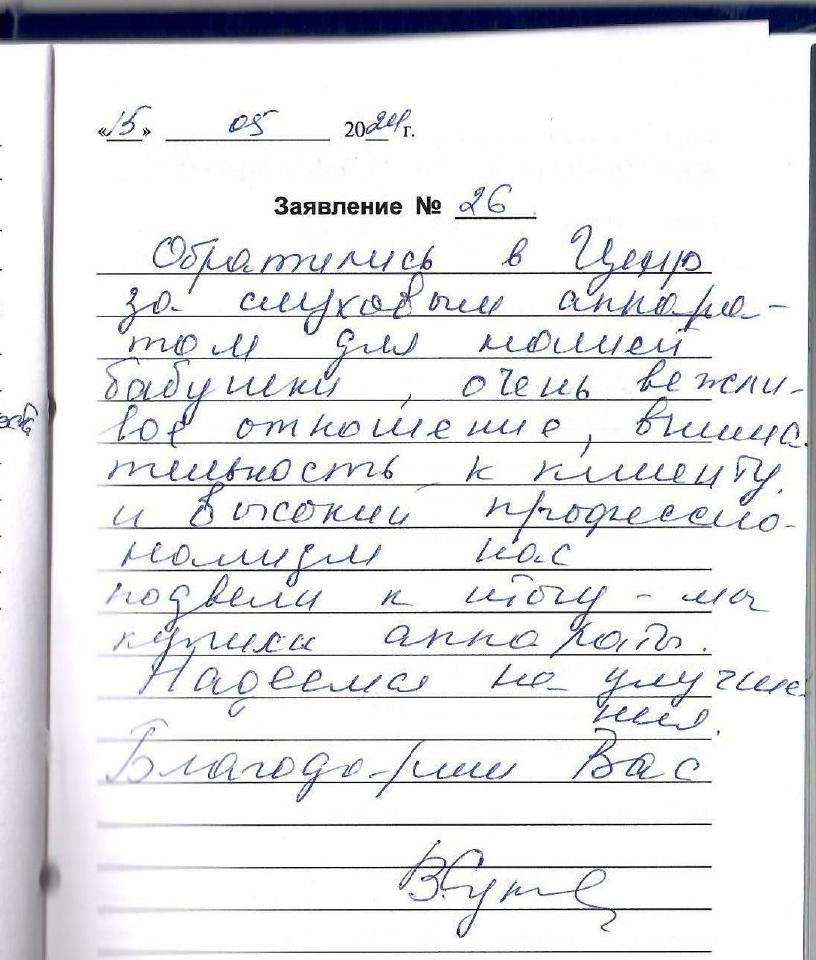 «15» 05 2024 г.
Заявление № 26
Обратились в Центр
за слуховым аппара-
том для нашей
бабушки, очень вежли-
вое отношение, внима-
тельность к клиенту
и высокий професссио-
нализм нас
подвели к итогу - мы
купили аппараты.
Надеемся на улучше-
ния.
Благодарим Вас